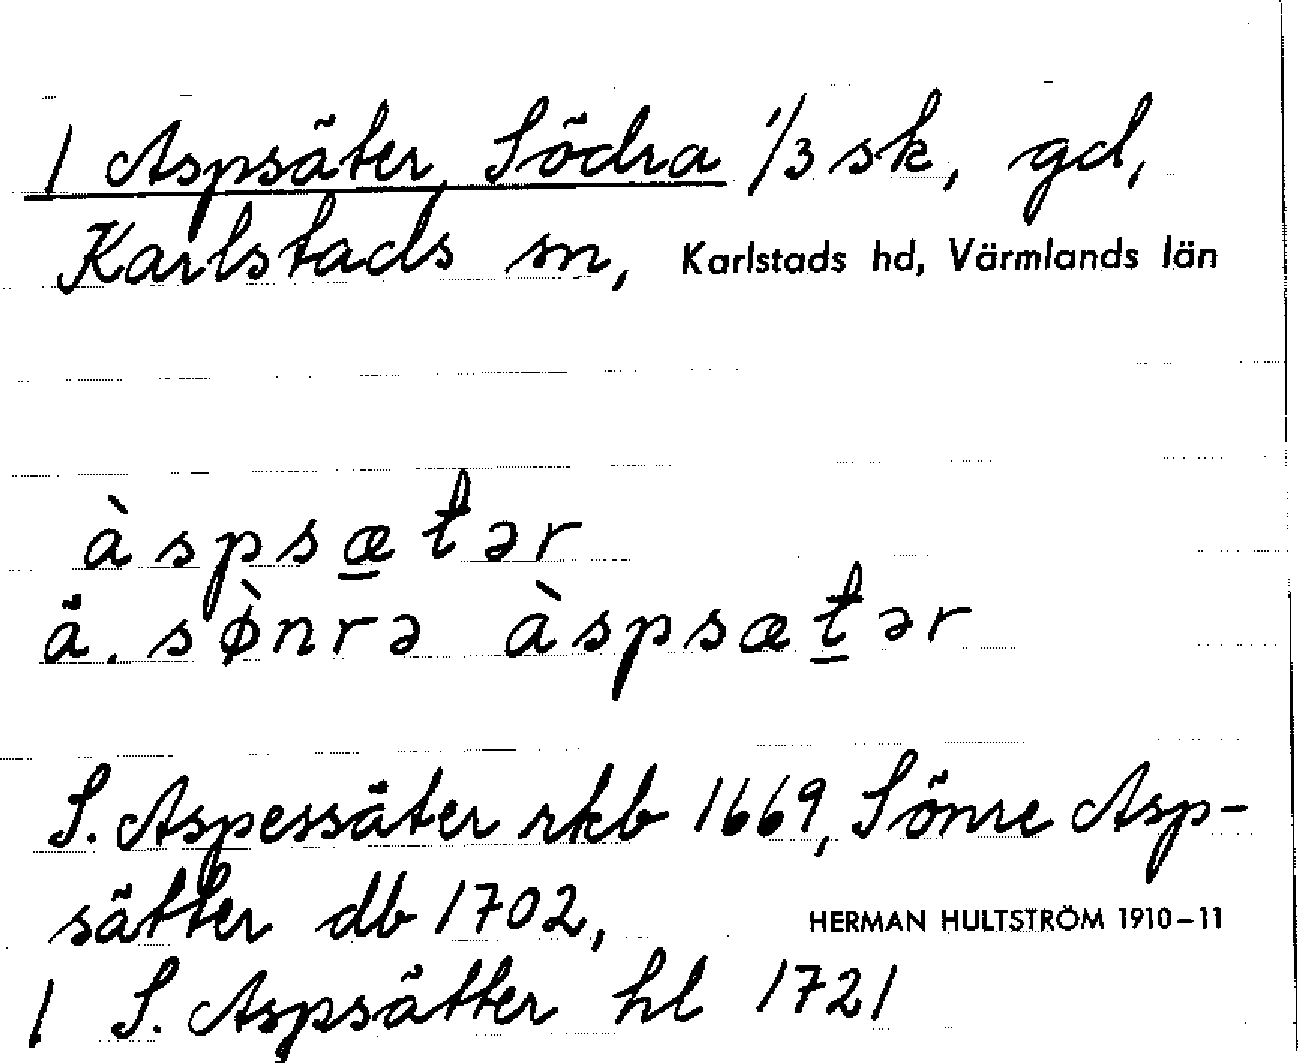 1 Aspsäter, Södra 1/3 sk, gd,
Karlstads sn, Karlstads hd, Värmlands län
àspsæ̲tər
ä. sø̀nrə àspsæt̲ər
S. Aspessäter rkb 1669, Sönre Asp-
sätter db 1702, HERMAN HULTSTRÖM 1910-11
1 S. Aspsätter hl 1721